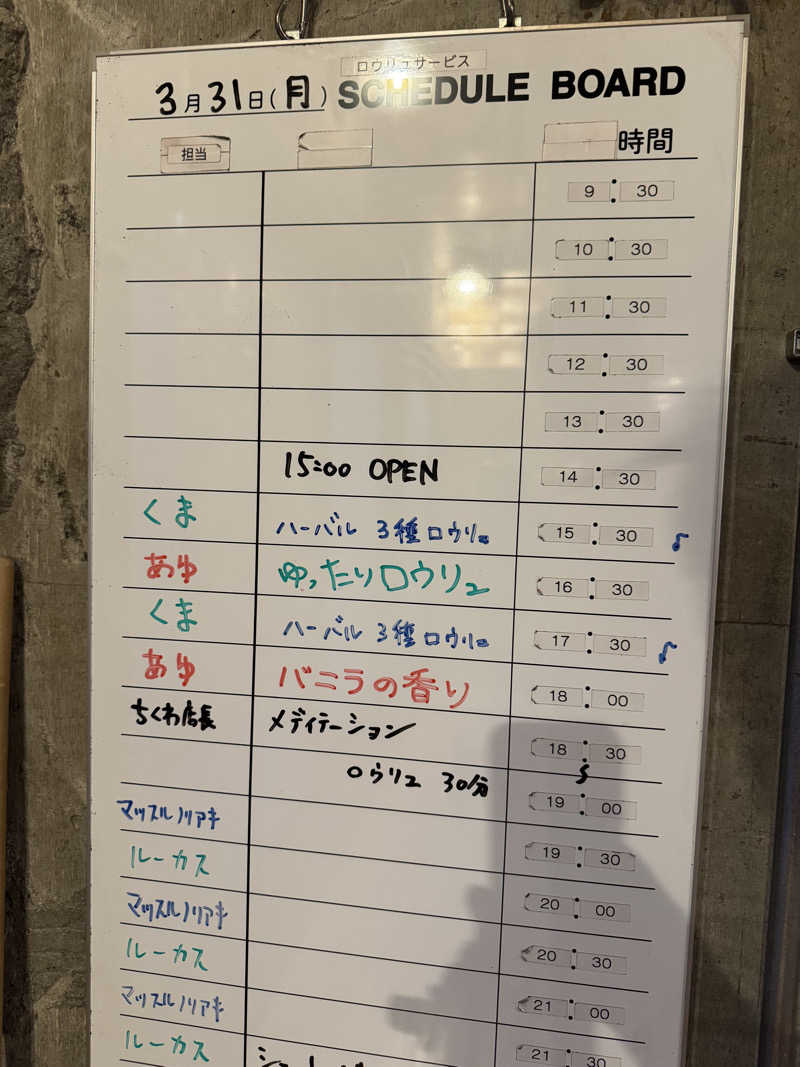 ロウリュサービス
3月31日(月) SCHEDULE BOARD
担当 時間
9:30
10:30
11:30
12:30
13:30
15:00 OPEN 14:30
くま ハーバル 3種ロウリュ 15:30 ♪
あゆ ゆったりロウリュ 16:30
くま ハーバル 3種ロウリュ 17:30 ♪
あゆ バニラの香り 18:00
ちくわ店長 メディテーション 18:30
ロウリュ 30分 〜
マッスルノリアキ 19:00
ルーカス 19:30
マッスルノリアキ 20:00
ルーカス 20:30
マッスルノリアキ 21:00
ルーカス 21:30